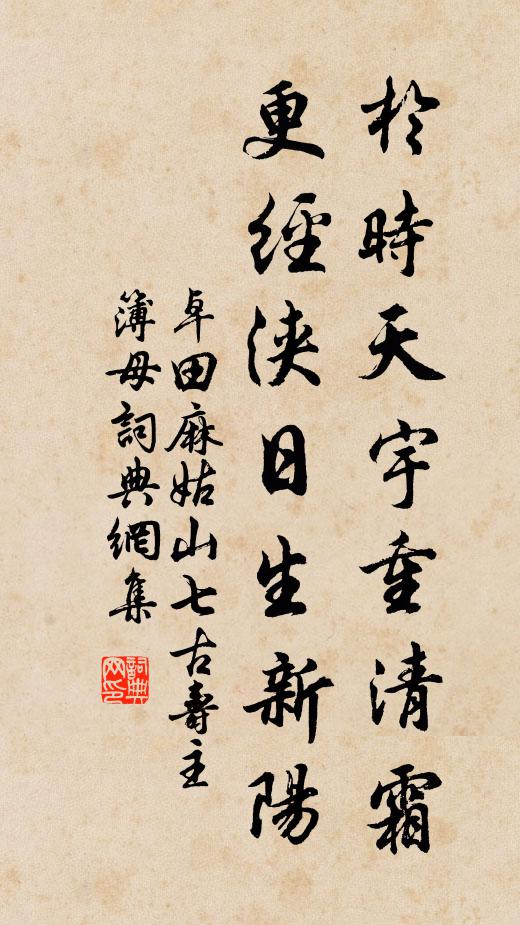 於時天宇重清霜
更經浹日生新陽
卓田麻姑山七古壽主
簿母詞典網集
詞典网印